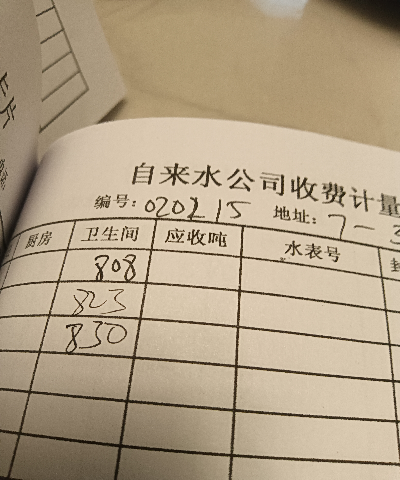 自来水公司收费计量
编号: 020215 地址: 7-3
厨房 卫生间 应收吨 水表号
808
823
830